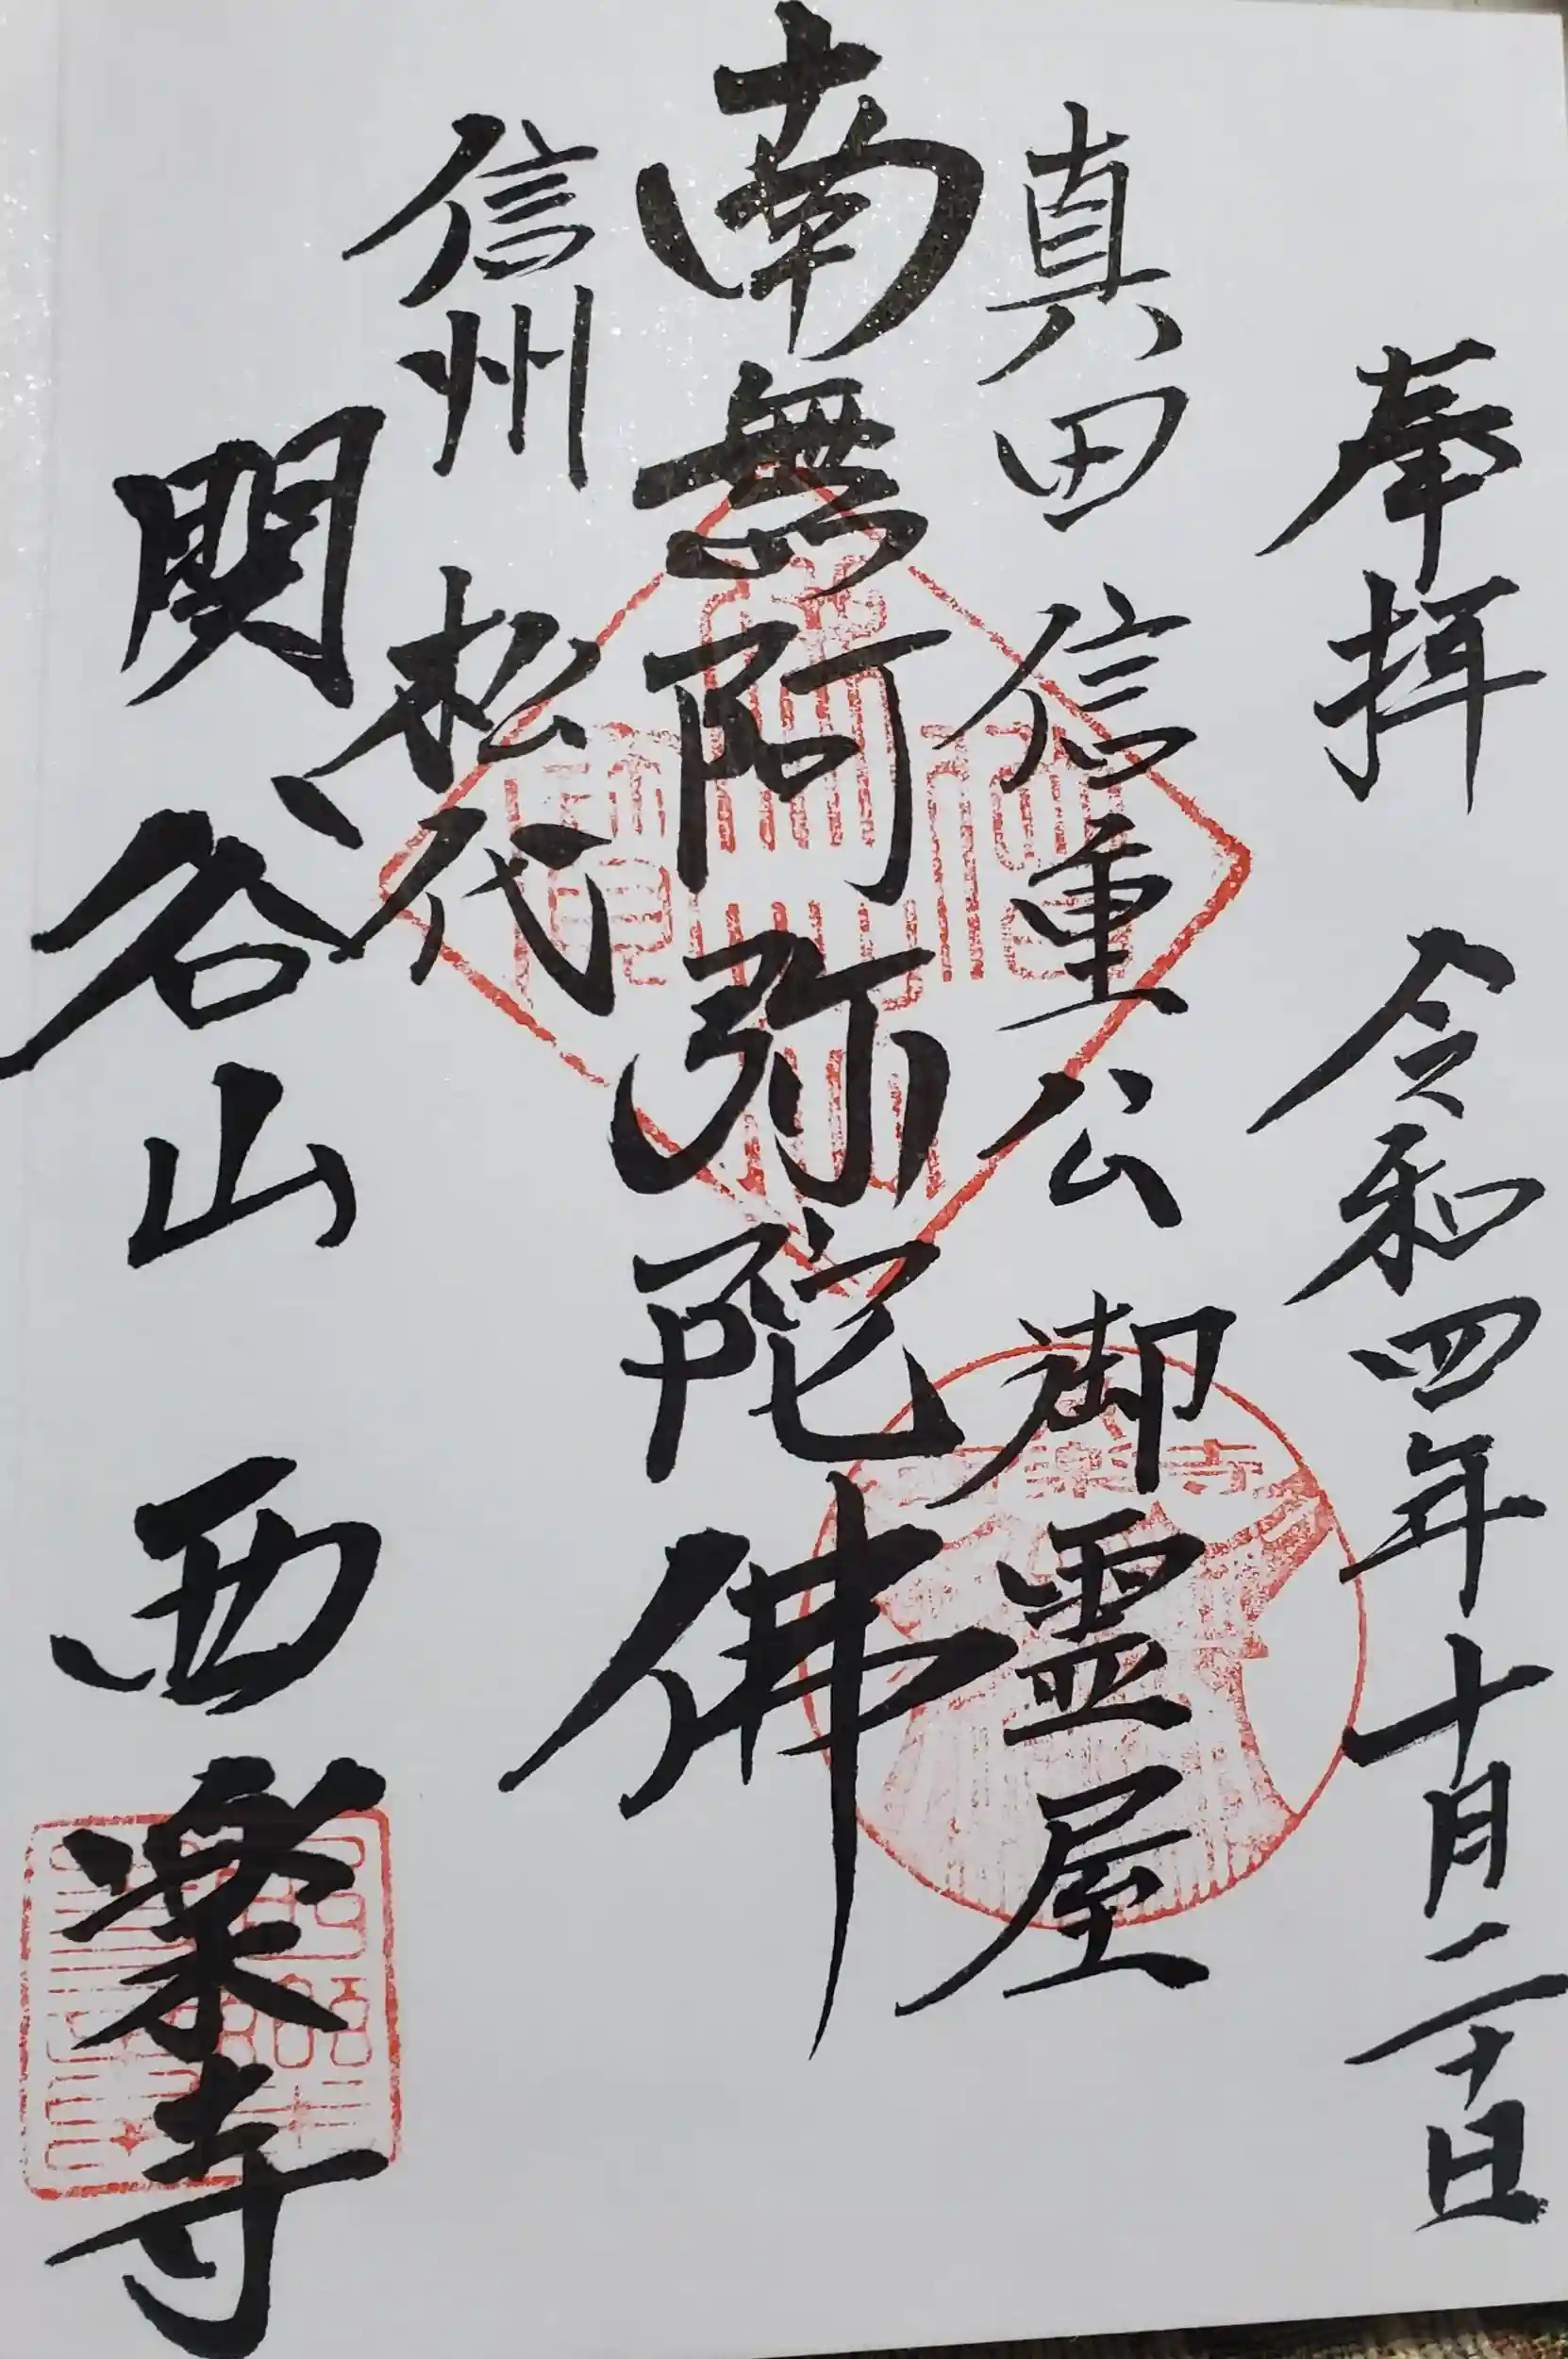 奉拝 令和四年十月二十日
真田信重公御霊屋
南無阿弥陀佛
信州松代
関谷山 西楽寺